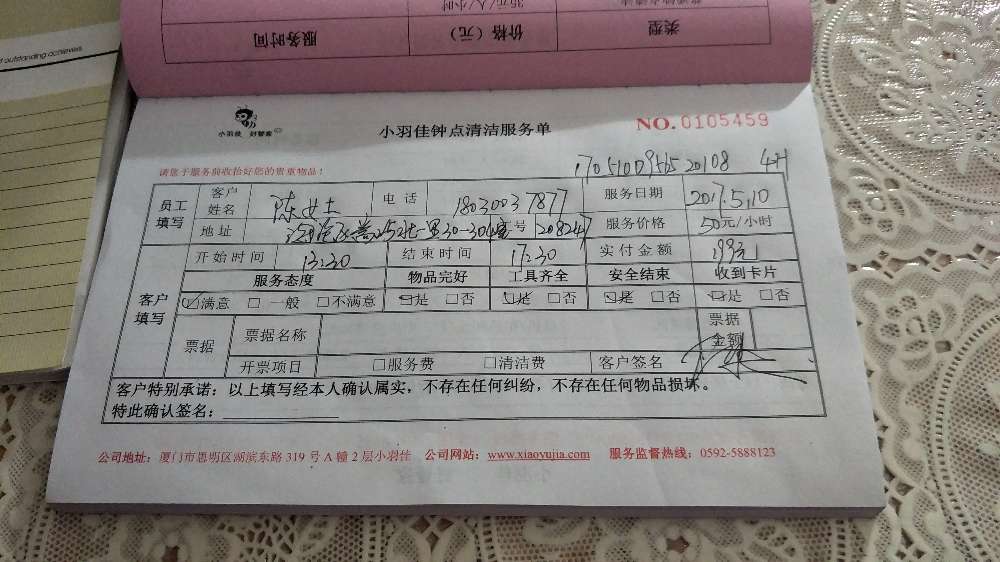 outstanding achieves
35元/人/小时
类型 价格（元） 服务时间
小羽佳 好管家
小羽佳钟点清洁服务单
NO. 0105459
请您于服务前收拾好您的贵重物品！
4H
员工填写 客户姓名 陈女士 电话 18030037877 服务日期 2017.5.10
地址 号 208247 服务价格 50元/小时
开始时间 13:30 结束时间 17:30 实付金额 199元
客户填写 服务态度 物品完好 工具齐全 安全结束 收到卡片
☑满意 □一般 □不满意 ☑是 □否 ☑是 □否 ☑是 □否 ☑是 □否
票据 票据名称 票据金额
开票项目 □服务费 □清洁费 客户签名
客户特别承诺：以上填写经本人确认属实，不存在任何纠纷，不存在任何物品损坏。
特此确认签名：
公司地址：厦门市思明区湖滨东路 319 号 A 幢 2 层小羽佳 公司网站：www.xiaoyujia.com 服务监督热线：0592-5888123